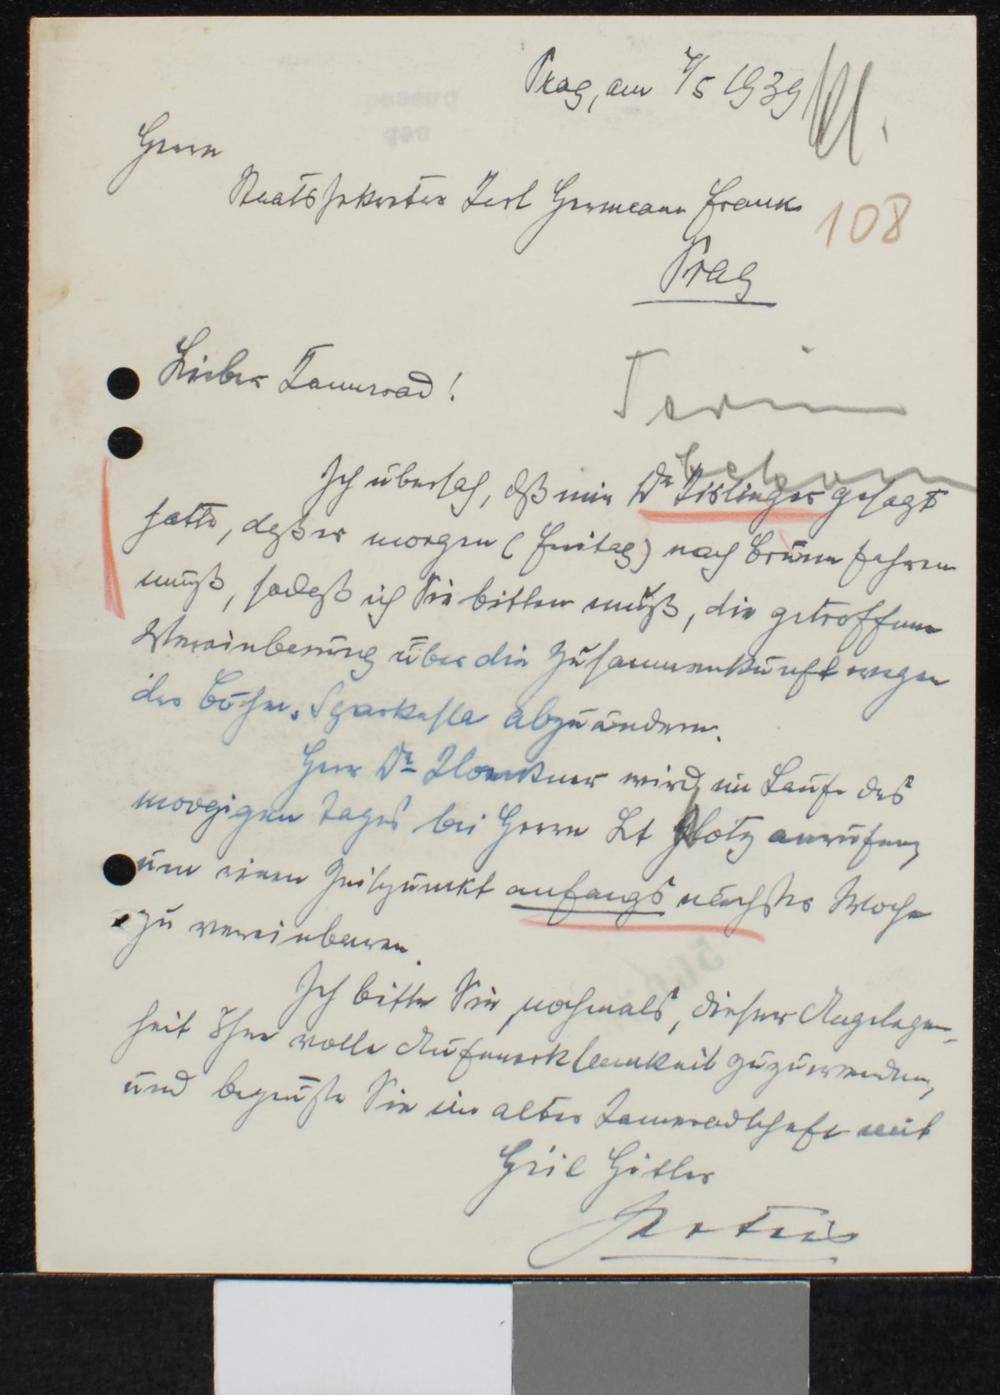 Prag, am 4/5 1939
Herrn
Staatssekretär Karl Hermann Frank
108
Prag
Lieber Kamerad!
Termin
Ich übersah, dß mir Dr Kislinger gesagt
hatte, daß er morgen (Freitag) nach Brünn fahren
muß, sodaß ich Sie bitten muß, die getroffene
Vereinbarung über die Zusammenkunft wegen
der Böhm. Sparkassa abzuändern.
Herr Dr wird im Laufe des
morgigen Tages bei Herrn Lt Glotz anrufen,
um einen Zeitpunkt anfangs nächster Woche
zu vereinbaren.
Ich bitte Sie nochmals, dieser Angelegen-
heit Ihre volle Aufmerksamkeit zuzuwenden,
und begrüße Sie in alter Kameradschaft mit
Heil Hitler